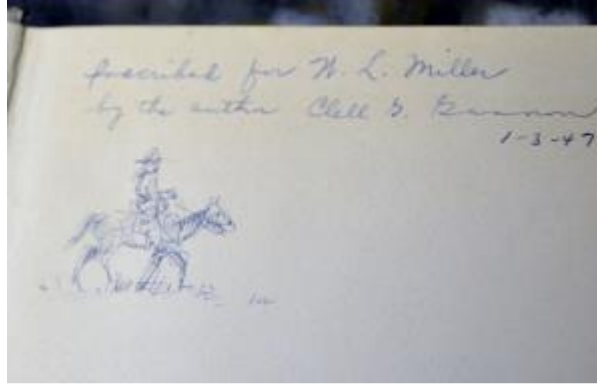 Inscribed for W. L. Miller
by the author Clell G. Gannon
1-3-47